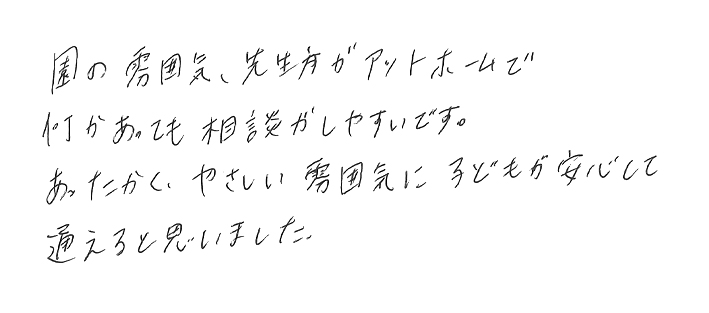 園の雰囲気、先生方がアットホームで
何かあっても相談がしやすいです。
あったかく、やさしい雰囲気に子どもが安心して
通えると思いました。